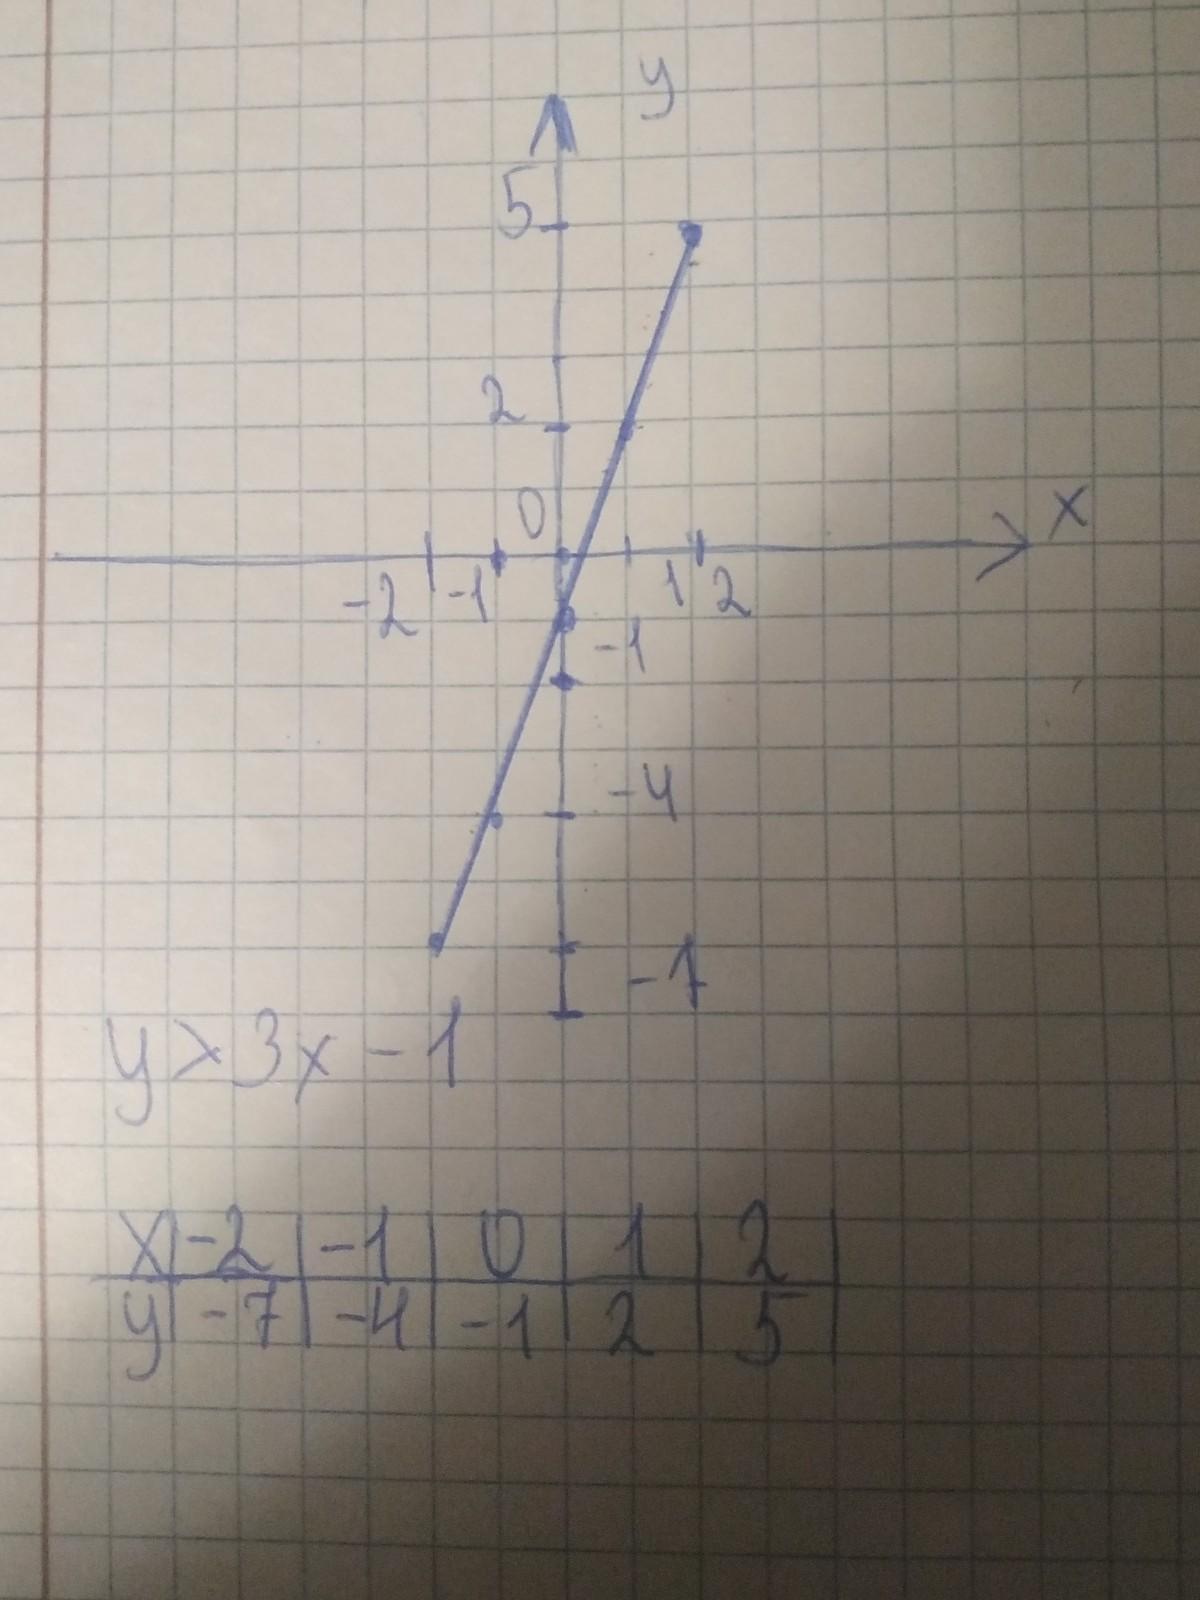 y
5
2
0
x
-2 -1 1 2
-1
-4
-7
y > 3x - 1
x -2 -1 0 1 2
y -7 -4 -1 2 5